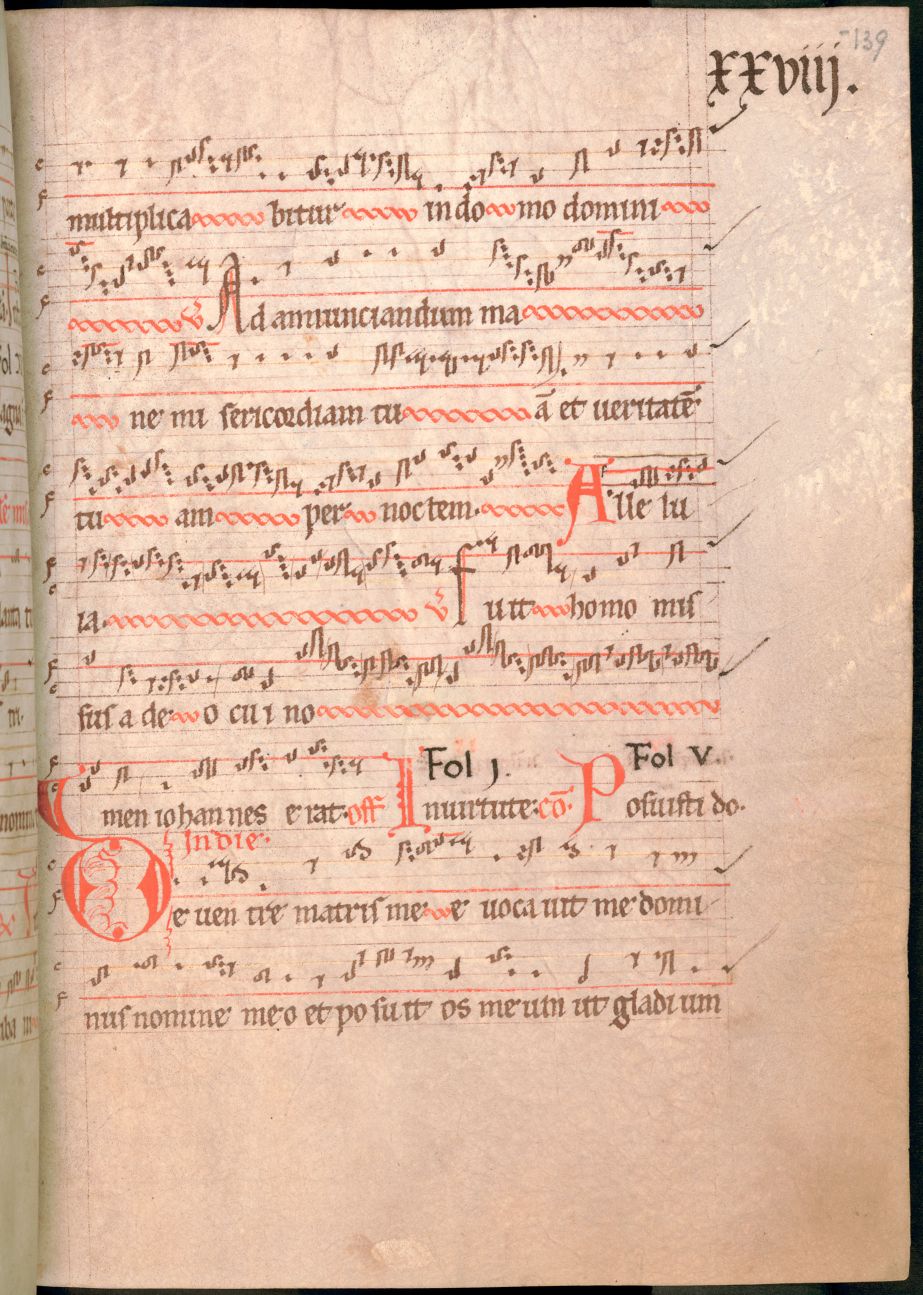 139
xxviij.
multiplica bitur in do mo domini
℣ Ad annunciandum ma
ne mi sericordiam tu ā et veritatē
tu am per noctem. Alle lu
ia. ℣ Fuit homo mis
sus a de o cu i no
men iohannes e rat. off Fol j. In virtute. cō. Fol V. Posuisti do.
In die.
De ven tre matris me e voca vit me domi
nus nomine me o et po su it os me um ut gladi um